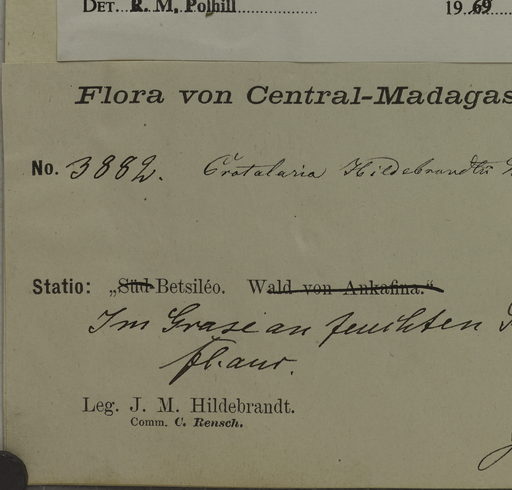 DET. R. M. Polhill 1969
Flora von Central-Madagas
No. 3882. Crotalaria Hildebrandtii
Statio: „Süd-Betsiléo. Wald von Ankafina.“
Im Grase an feuchten
fl. aur.
Leg. J. M. Hildebrandt.
Comm. C. Rensch.